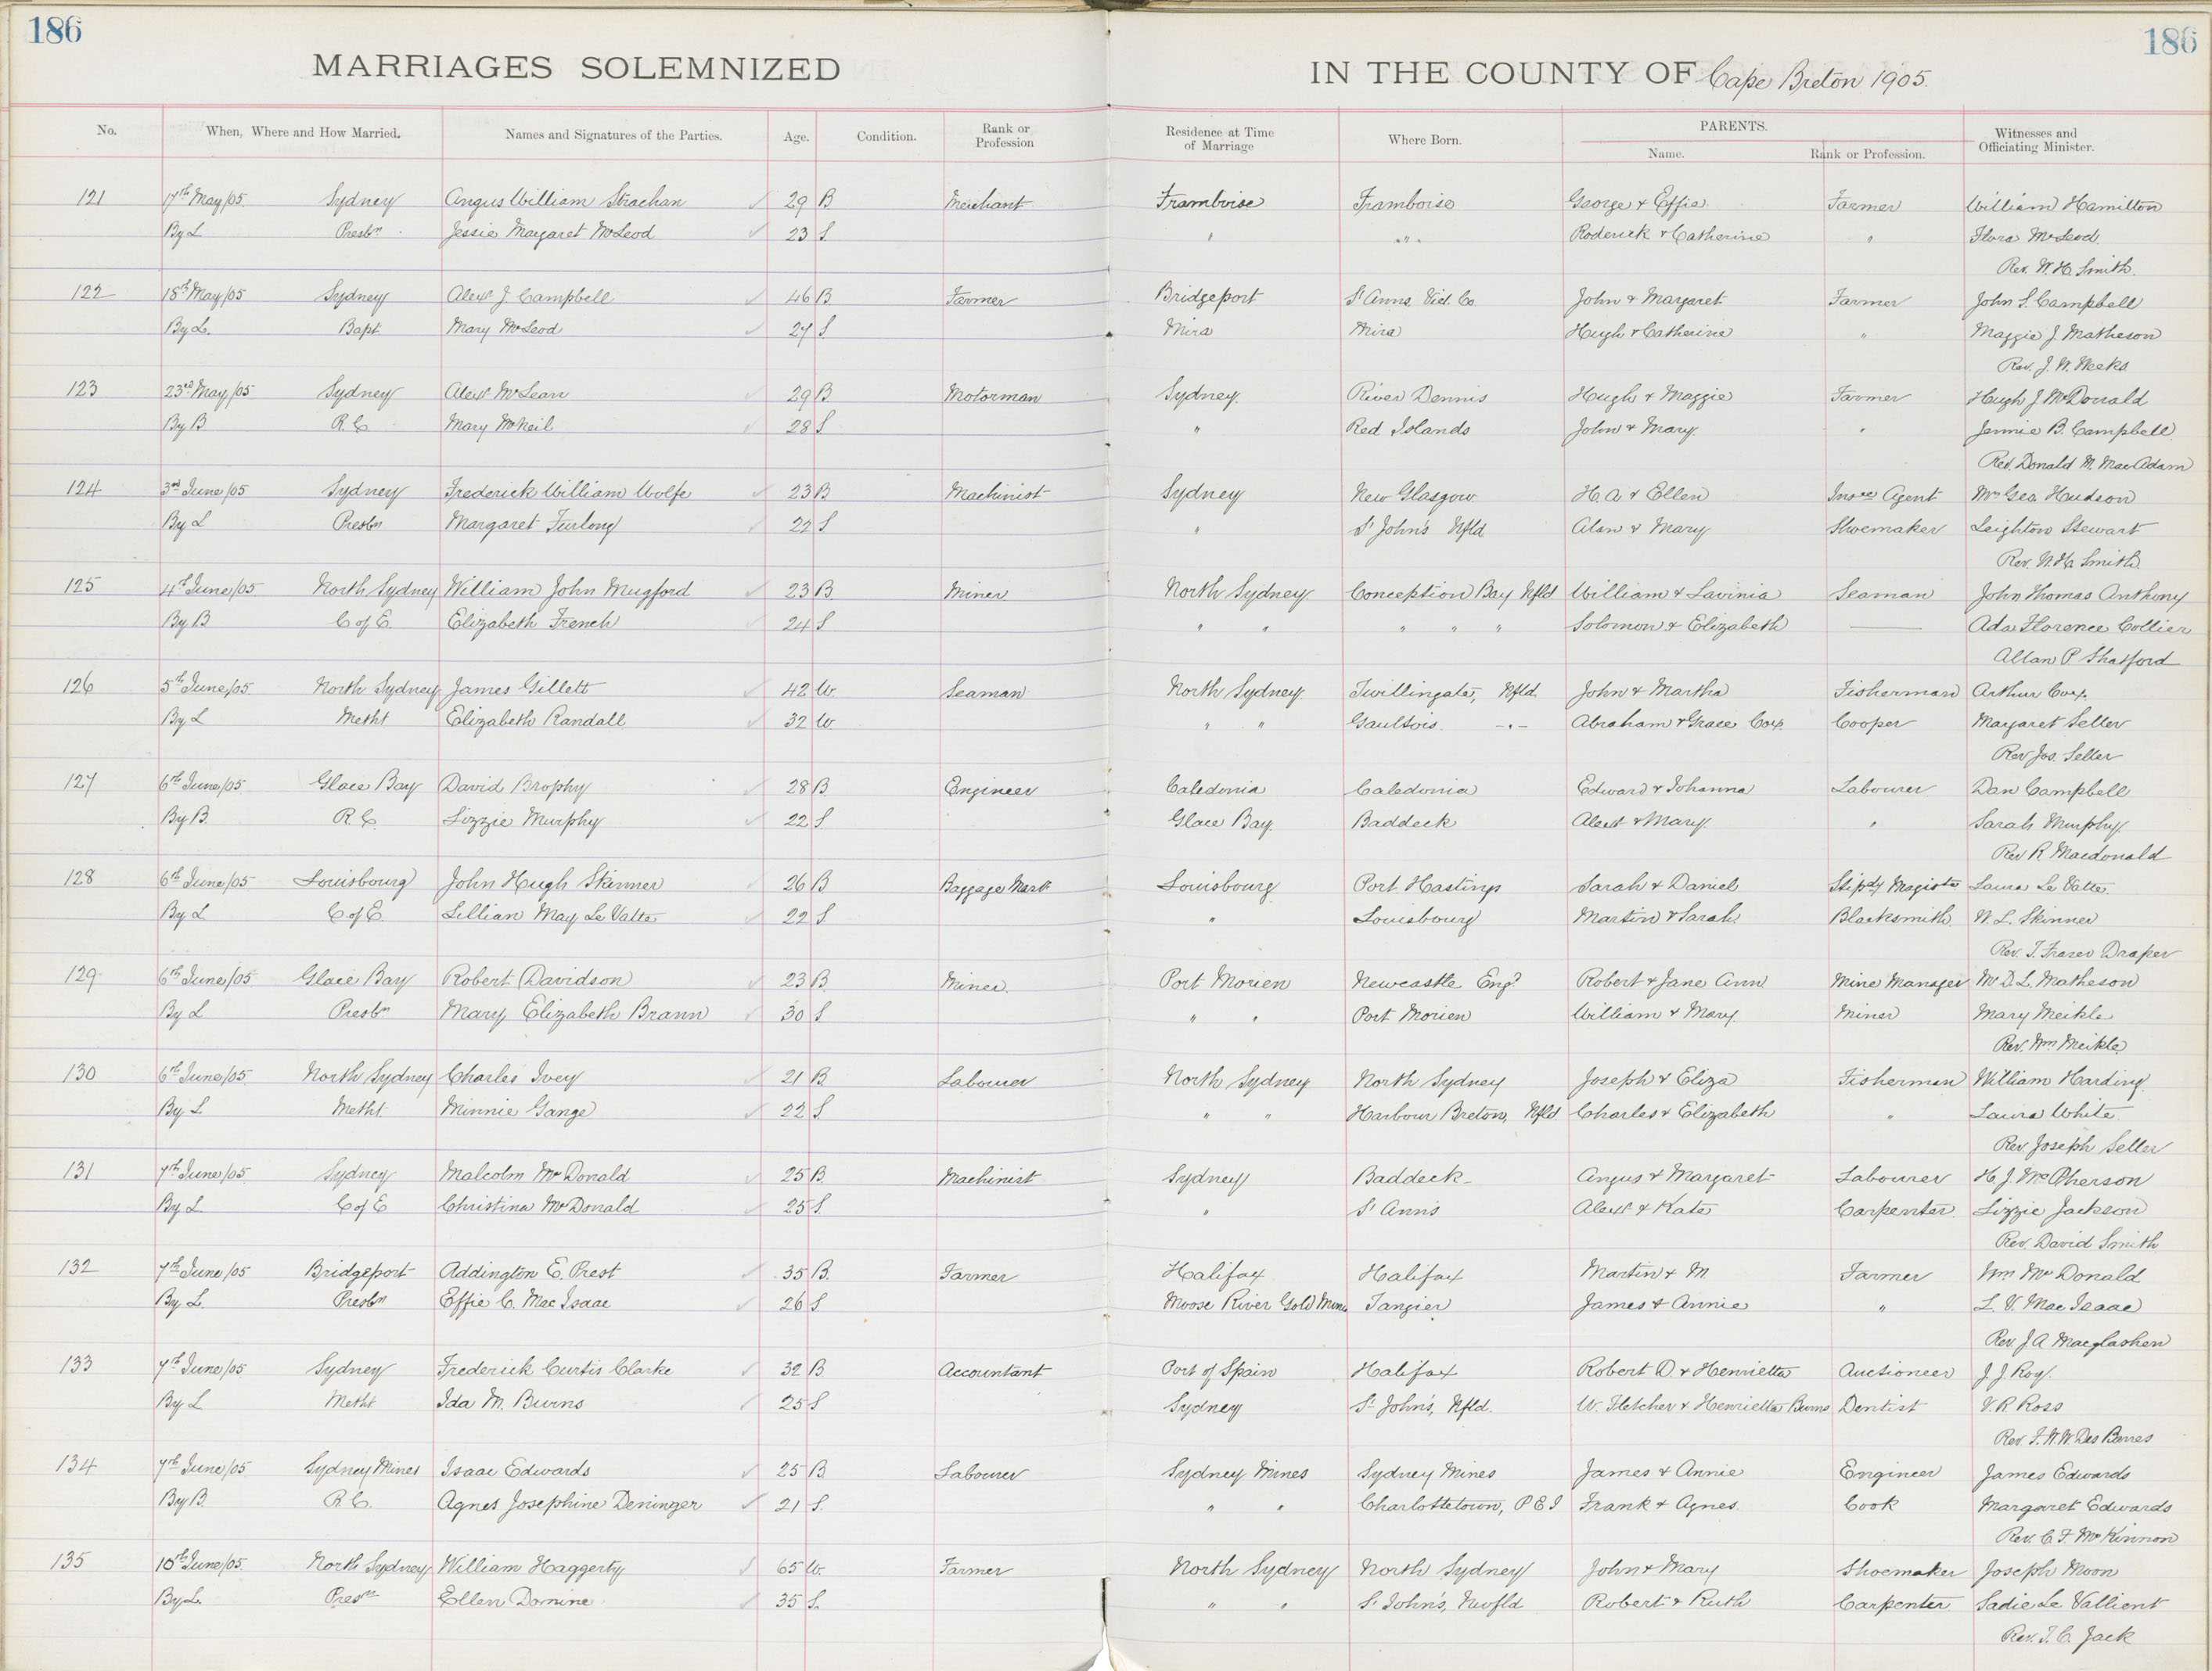 186 186
MARRIAGES SOLEMNIZED IN THE COUNTY OF Cape Breton 1905.
No. When, Where and How Married. Names and Signatures of the Parties. Age. Condition. Rank or Profession Residence at Time of Marriage Where Born. PARENTS. Name. Rank or Profession. Witnesses and Officiating Minister.
121 17th May/05 Sydney Angus William Strachan 29 B Merchant Framboise Framboise George & Effie Farmer William Hamilton
By L Presbn Jessie Margaret McLeod 23 S " " Roderick & Catherine " Flora McLeod
Rev. W. H. Smith.
122 18th May/05 Sydney Alexr J. Campbell 46 B Farmer Bridgeport St Anns Vic. Co. John & Margaret Farmer John S. Campbell
By L. Bapt Mary McLeod 27 S Mira Mira Hugh & Catherine " Maggie J. Matheson
Rev. J. W. Meeks
123 23rd May/05 Sydney Alexr McLean 29 B Motorman Sydney. River Dennis Hugh & Maggie Farmer Hugh J. McDonald
By B R. C. Mary McNeil 28 S " Red Islands John & Mary. " Jennie B. Campbell
Rev. Donald M. MacAdam
124 3rd June/05 Sydney Frederick William Wolfe 23 B Machinist Sydney New Glasgow H. A. & Ellen Insce Agent Mrs Geo. Hudson
By L Presbn Margaret Furlong 22 S " St John's Nfld Alan & Mary Shoemaker Leighton Stewart
Rev. W. H. Smith.
125 4th June/05 North Sydney William John Mugford 23 B Miner North Sydney Conception Bay Nfld William & Lavinia Seaman John Thomas Anthony
By B C of E. Elizabeth French 24 S " " " " " Solomon & Elizabeth — Ada Florence Collier
Allan P Shatford
126 5th June/05 North Sydney James Gillett 42 W. Seaman North Sydney Twillingate, Nfld. John & Martha Fisherman Arthur Cox.
By L Metht Elizabeth Randall 32 W. " " Gaultois. -"- Abraham & Grace Cox. Cooper Margaret Seller
Rev Jos. Seller
127 6th June/05 Glace Bay David Brophy 28 B Engineer Caledonia Caledonia Edward & Johanna Labourer Dan Campbell
By B. R. C. Lizzie Murphy 22 S Glace Bay. Baddeck Alext & Mary. " Sarah Murphy.
Rev R Macdonald
128 6th June/05 Louisbourg John Hugh Skinner 26 B Baggage Mastr Louisbourg Port Hastings Sarah & Daniel Stipdy Magiste Laura Le Vatte.
By L C of E. Lillian May Le Vatte 22 S " Louisbourg Martin & Sarah Blacksmith W. L. Skinner
Rev. T. Fraser Draper
129 6th June/05 Glace Bay Robert Davidson 23 B Miner. Port Morien Newcastle Engd Robert & Jane Ann Mine Manager Mr D. L. Matheson
By L Presbn Mary Elizabeth Brann 30 S " " Port Morien William & Mary. Miner Mary Meikle
Rev. Wm Meikle
130 6th June/05 North Sydney Charles Ivey 21 B. Labourer North Sydney North Sydney Joseph & Eliza Fisherman William Harding.
By L Metht Minnie Gange 22 S. " " Harbour Breton, Nfld. Charles & Elizabeth " Laura White.
Rev. Joseph Seller
131 7th June/05 Sydney Malcolm McDonald 25 B. Machinist Sydney Baddeck Angus & Margaret Labourer H. J. McPherson
By L C of E Christina McDonald 25 S. " St Anns Alexr & Kate Carpenter. Lizzie Jackson
Rev. David Smith
132 7th June/05 Bridgeport Addington E. Prest 35 B. Farmer Halifax Halifax Martin & M Farmer Wm McDonald
By L. Presbn Effie C. MacIsaac 26 S Moose River Gold Mines Tangier James & Annie " L. V. MacIsaac
Rev. J A Macglashen
133 7th June/05 Sydney Frederick Curtis Clarke 32 B Accountant Port of Spain Halifax Robert D. & Henrietta Auctioneer J J Roy.
By L Metht Ida M. Burns 25 S Sydney St John's, Nfld. W. Fletcher & Henrietta Burns Dentist V. R Ross
Rev. F. W. W. Des Barres
134 7th June/05 Sydney Mines Isaac Edwards 25 B Labourer Sydney Mines Sydney Mines James & Annie Engineer James Edwards
By B. R. C. Agnes Josephine Deninger 21 S. " " Charlottetown, P E I Frank & Agnes. Cook Margaret Edwards
Rev. C. F. McKinnon
135 10th June/05. North Sydney William Haggerty 65 W. Farmer North Sydney North Sydney John & Mary Shoemaker Joseph Moon
By L. Presn Ellen Domine 35 S. " " St John's, Nwfld Robert & Ruth Carpenter Sadie Le Vallient
Rev. T. C. Jack